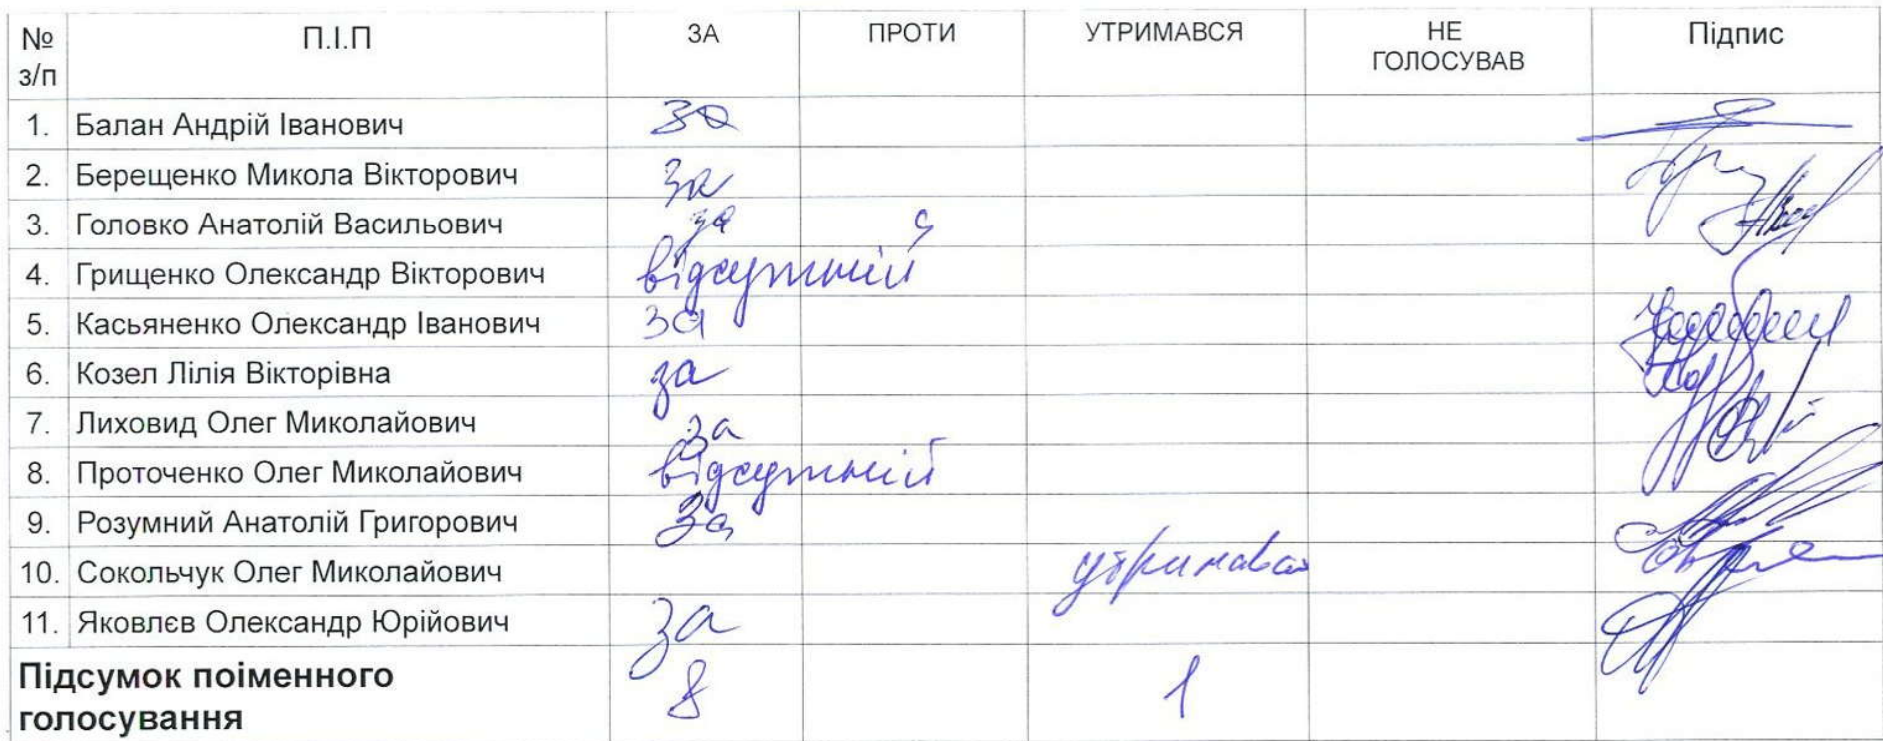 № з/п П.І.П ЗА ПРОТИ УТРИМАВСЯ НЕ ГОЛОСУВАВ Підпис
1. Балан Андрій Іванович за
2. Берещенко Микола Вікторович за
3. Головко Анатолій Васильович за
4. Грищенко Олександр Вікторович відсутній
5. Касьяненко Олександр Іванович за
6. Козел Лілія Вікторівна за
7. Лиховид Олег Миколайович за
8. Проточенко Олег Миколайович відсутній
9. Розумний Анатолій Григорович За
10. Сокольчук Олег Миколайович
11. Яковлєв Олександр Юрійович за
Підсумок поіменного
голосування 8 1